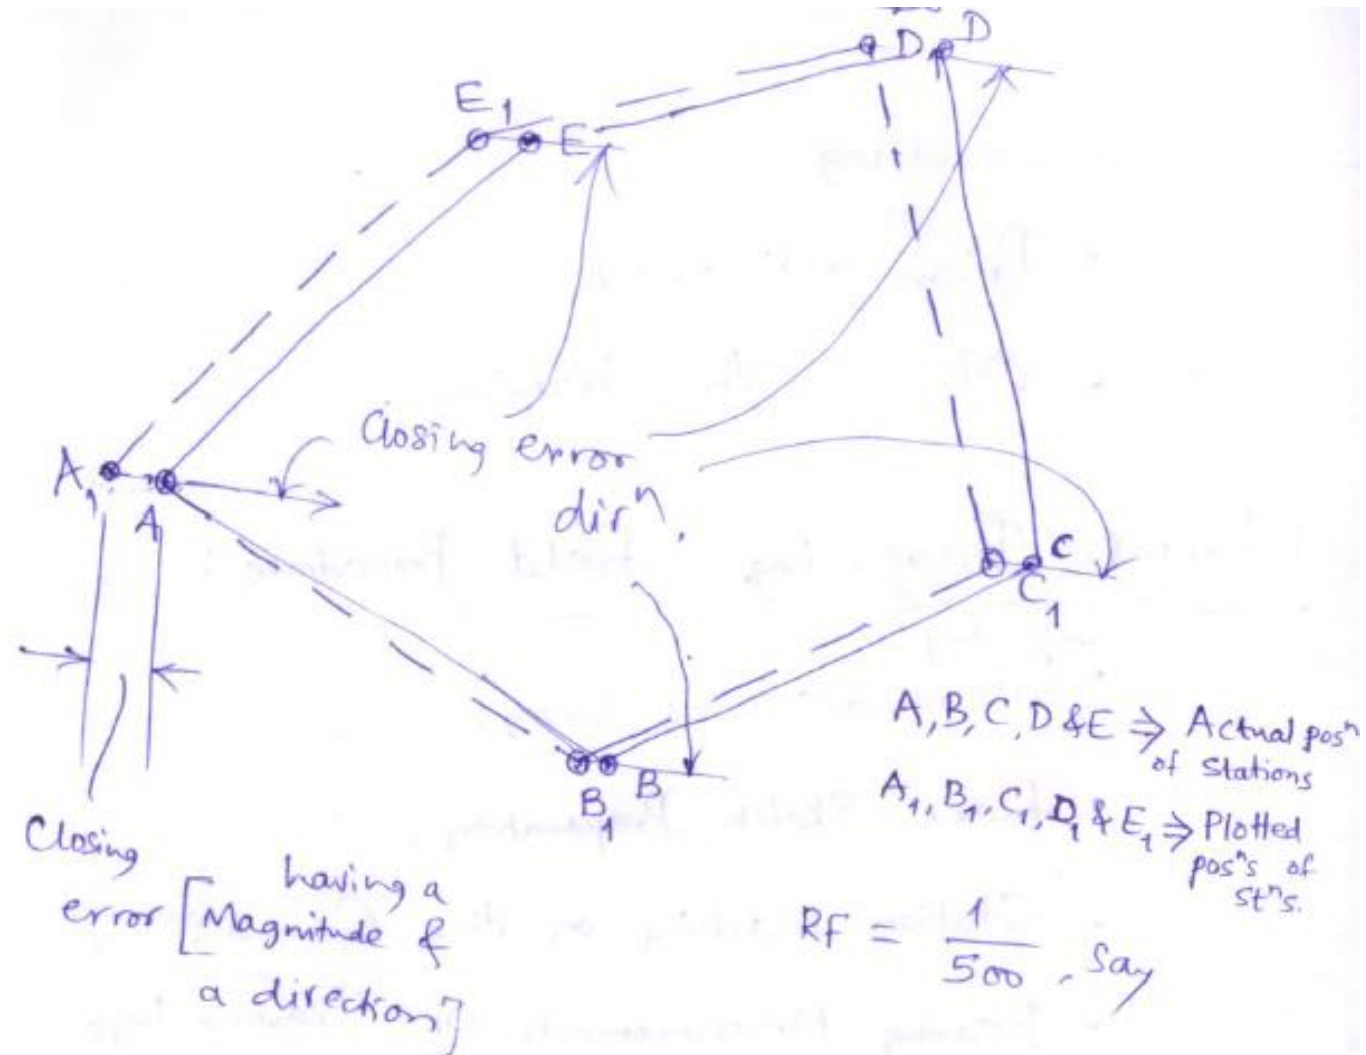 E₁
E
D₁
D
A₁
A
Closing error
dirⁿ.
C
C₁
B₁
B
A, B, C, D & E ⇒ Actual posⁿ
of Stations
A₁, B₁, C₁, D₁ & E₁ ⇒ Plotted
posⁿs of
stⁿs.
Closing
error [having a
Magnitude &
a direction]
RF = 1/500, say